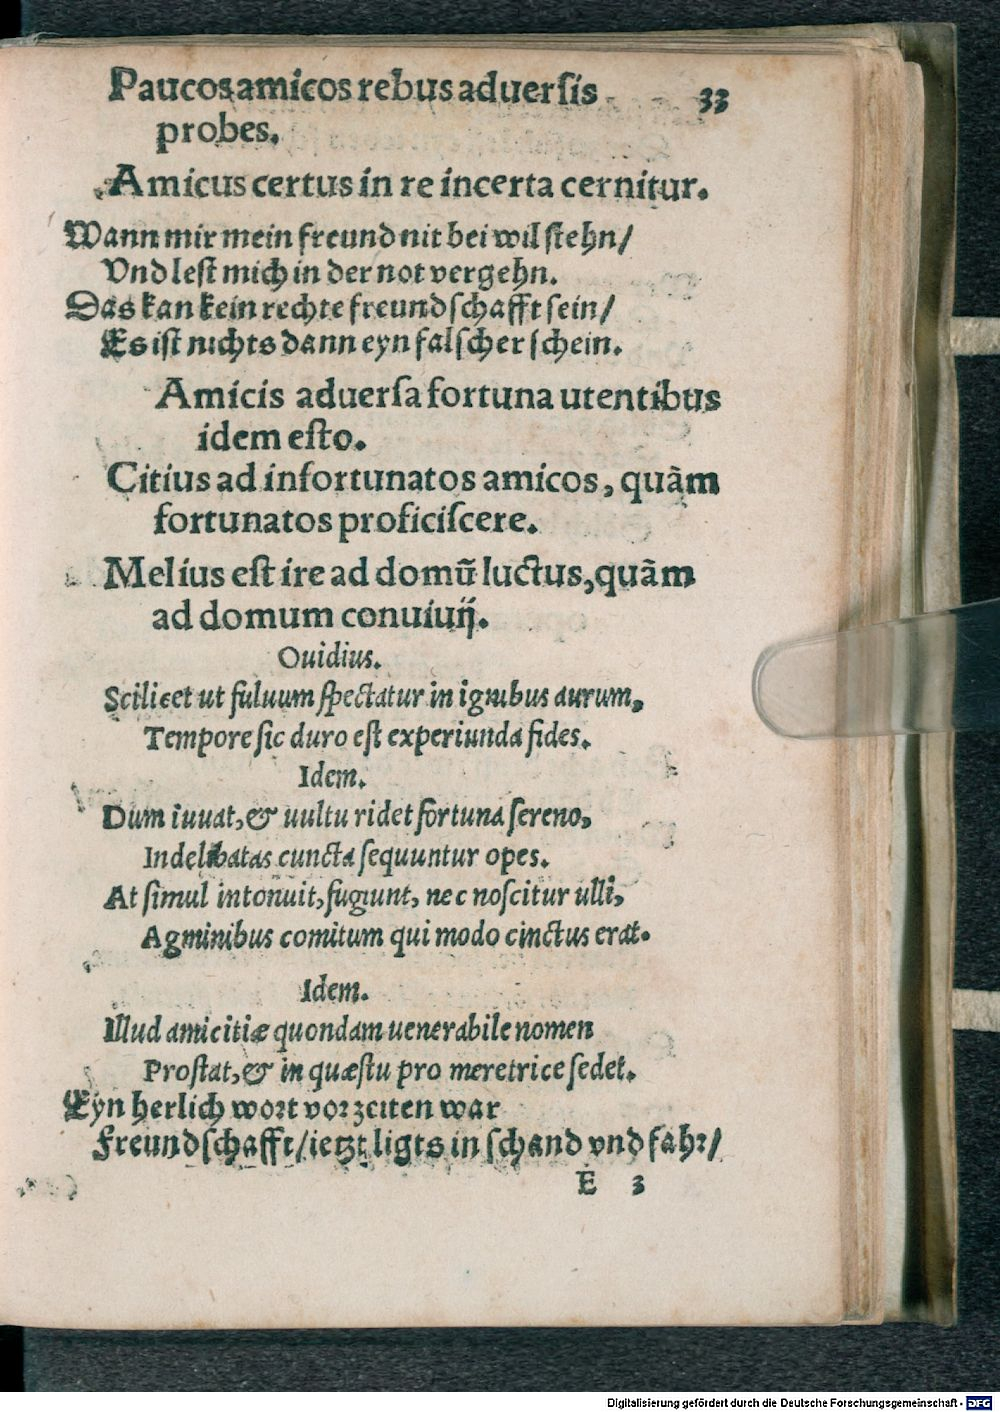 Paucos amicos rebus aduersis
33
probes.
Amicus certus in re incerta cernitur.
Wann mir mein freund nit bei wil stehn/
Vnd lest mich in der not vergehn.
Das kan kein rechte freundschafft sein/
Es ist nichts dann eyn falscher schein.
Amicis aduersa fortuna utentibus
idem esto.
Citius ad infortunatos amicos, quàm
fortunatos proficiscere.
Melius est ire ad domũ luctus, quàm
ad domum conuiuij.
Ouidius.
Scilicet ut fuluum spectatur in ignibus aurum,
Tempore sic duro est experiunda fides.
Idem.
Dum iuuat, & uultu ridet fortuna sereno,
Indelibatas cuncta sequuntur opes.
At simul intonuit, fugiunt, nec noscitur ulli,
Agminibus comitum qui modo cinctus erat.
Idem.
Illud amicitiæ quondam uenerabile nomen
Prostat, & in quæstu pro meretrice sedet.
Eyn herlich wort vorzeiten war
Freundschafft/ ietzt ligts in schand vnd fahr/
E 3
Digitalisierung gefördert durch die Deutsche Forschungsgemeinschaft - DFG